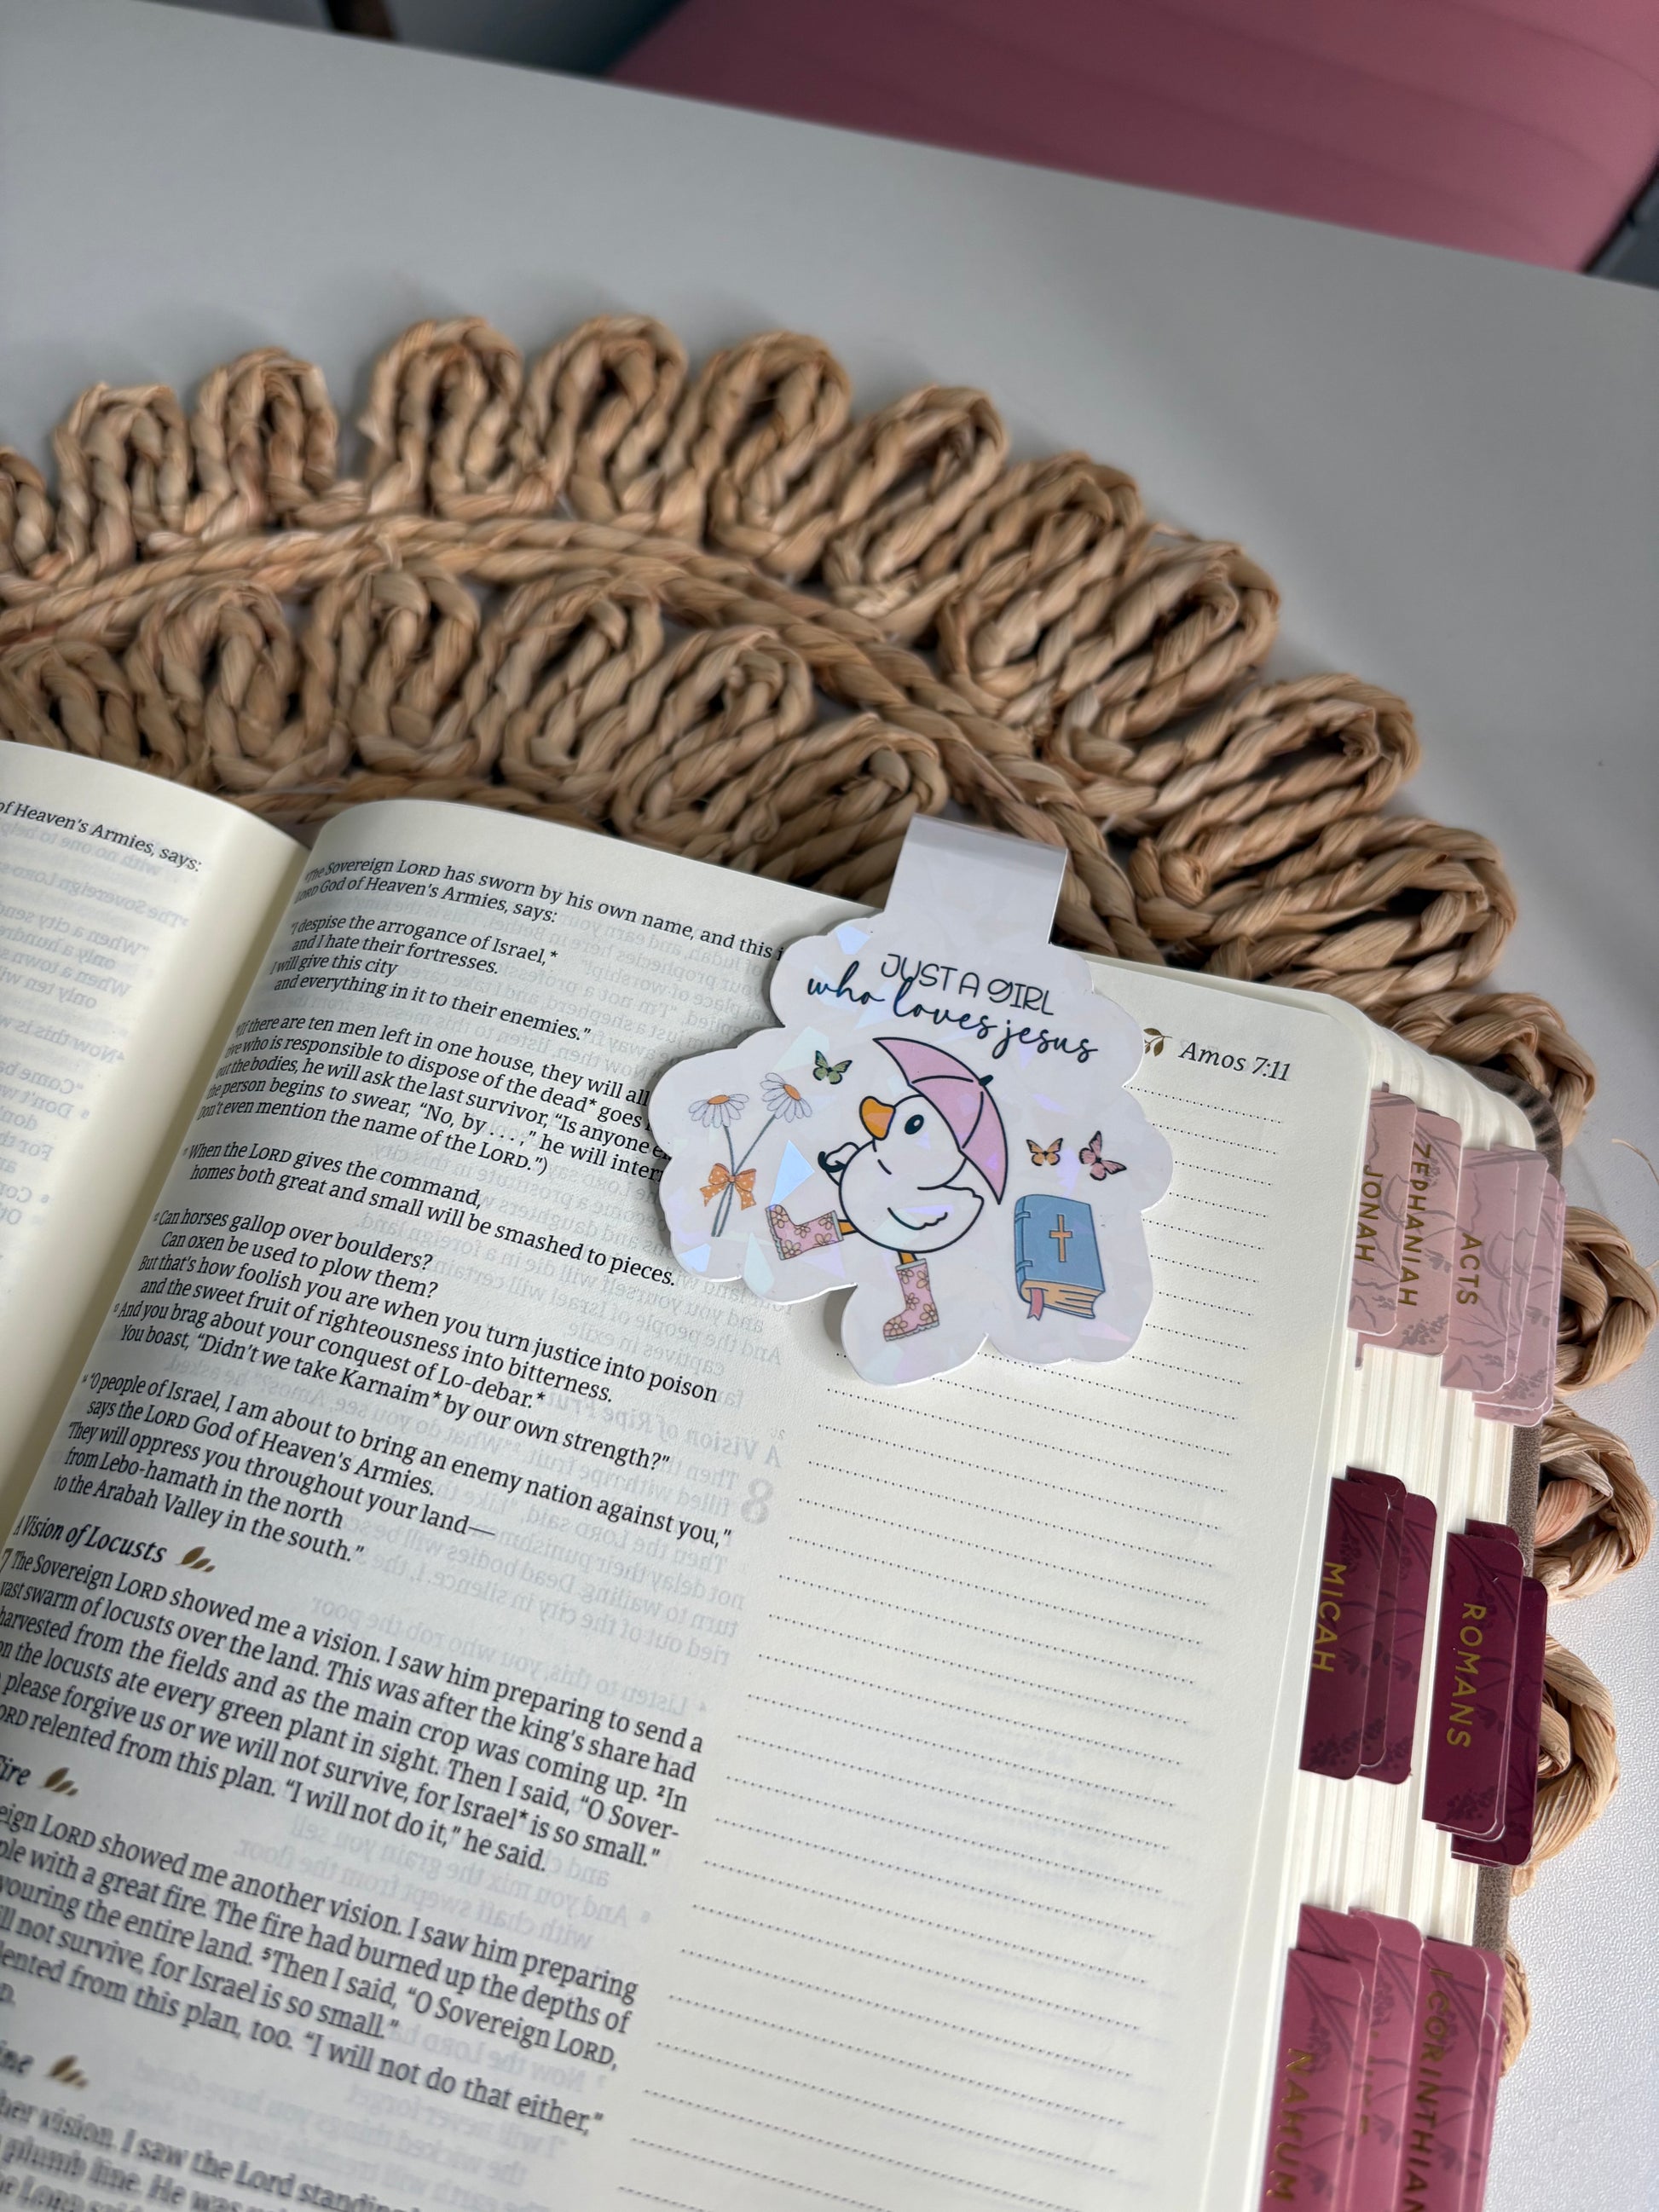 of Heaven's Armies, says:
The Sovereign LORD has sworn by his own name, and this
LORD God of Heaven's Armies, says:
"I despise the arrogance of Israel,*
and I hate their fortresses.
I will give this city
and everything in it to their enemies."
there are ten men left in one house, they will all
who is responsible to dispose of the dead* goes
the bodies, he will ask the last survivor, "Is anyone
the person begins to swear, "No, by . . . ," he will
Don't even mention the name of the LORD.")
When the LORD gives the command,
homes both great and small will be smashed to pieces.
Can horses gallop over boulders?
Can oxen be used to plow them?
But that's how foolish you are when you turn justice into poison
and the sweet fruit of righteousness into bitterness.
And you brag about your conquest of Lo-debar.*
You boast, "Didn't we take Karnaim* by our own strength?"
"O people of Israel, I am about to bring an enemy nation against you,"
says the LORD God of Heaven's Armies.
"They will oppress you throughout your land—
from Lebo-hamath in the north
to the Arabah Valley in the south."
A Vision of Locusts
7 The Sovereign LORD showed me a vision. I saw him preparing to send a
vast swarm of locusts over the land. This was after the king's share had
harvested from the fields and as the main crop was coming up. ²In
the locusts ate every green plant in sight. Then I said, "O Sover-
please forgive us or we will not survive, for Israel* is so small."
LORD relented from this plan. "I will not do it," he said.
Fire
LORD showed me another vision. I saw him preparing
with a great fire. The fire had burned up the depths of
the entire land. ⁵Then I said, "O Sovereign LORD,
not survive, for Israel is so small."
from this plan, too. "I will not do that either,"
vision. I saw the Lord standing
plumb line. He was
JUST A GIRL
who loves jesus
Amos 7:11
JONAH
ZEPHANIAH
ACTS
MICAH
ROMANS
NAHUM